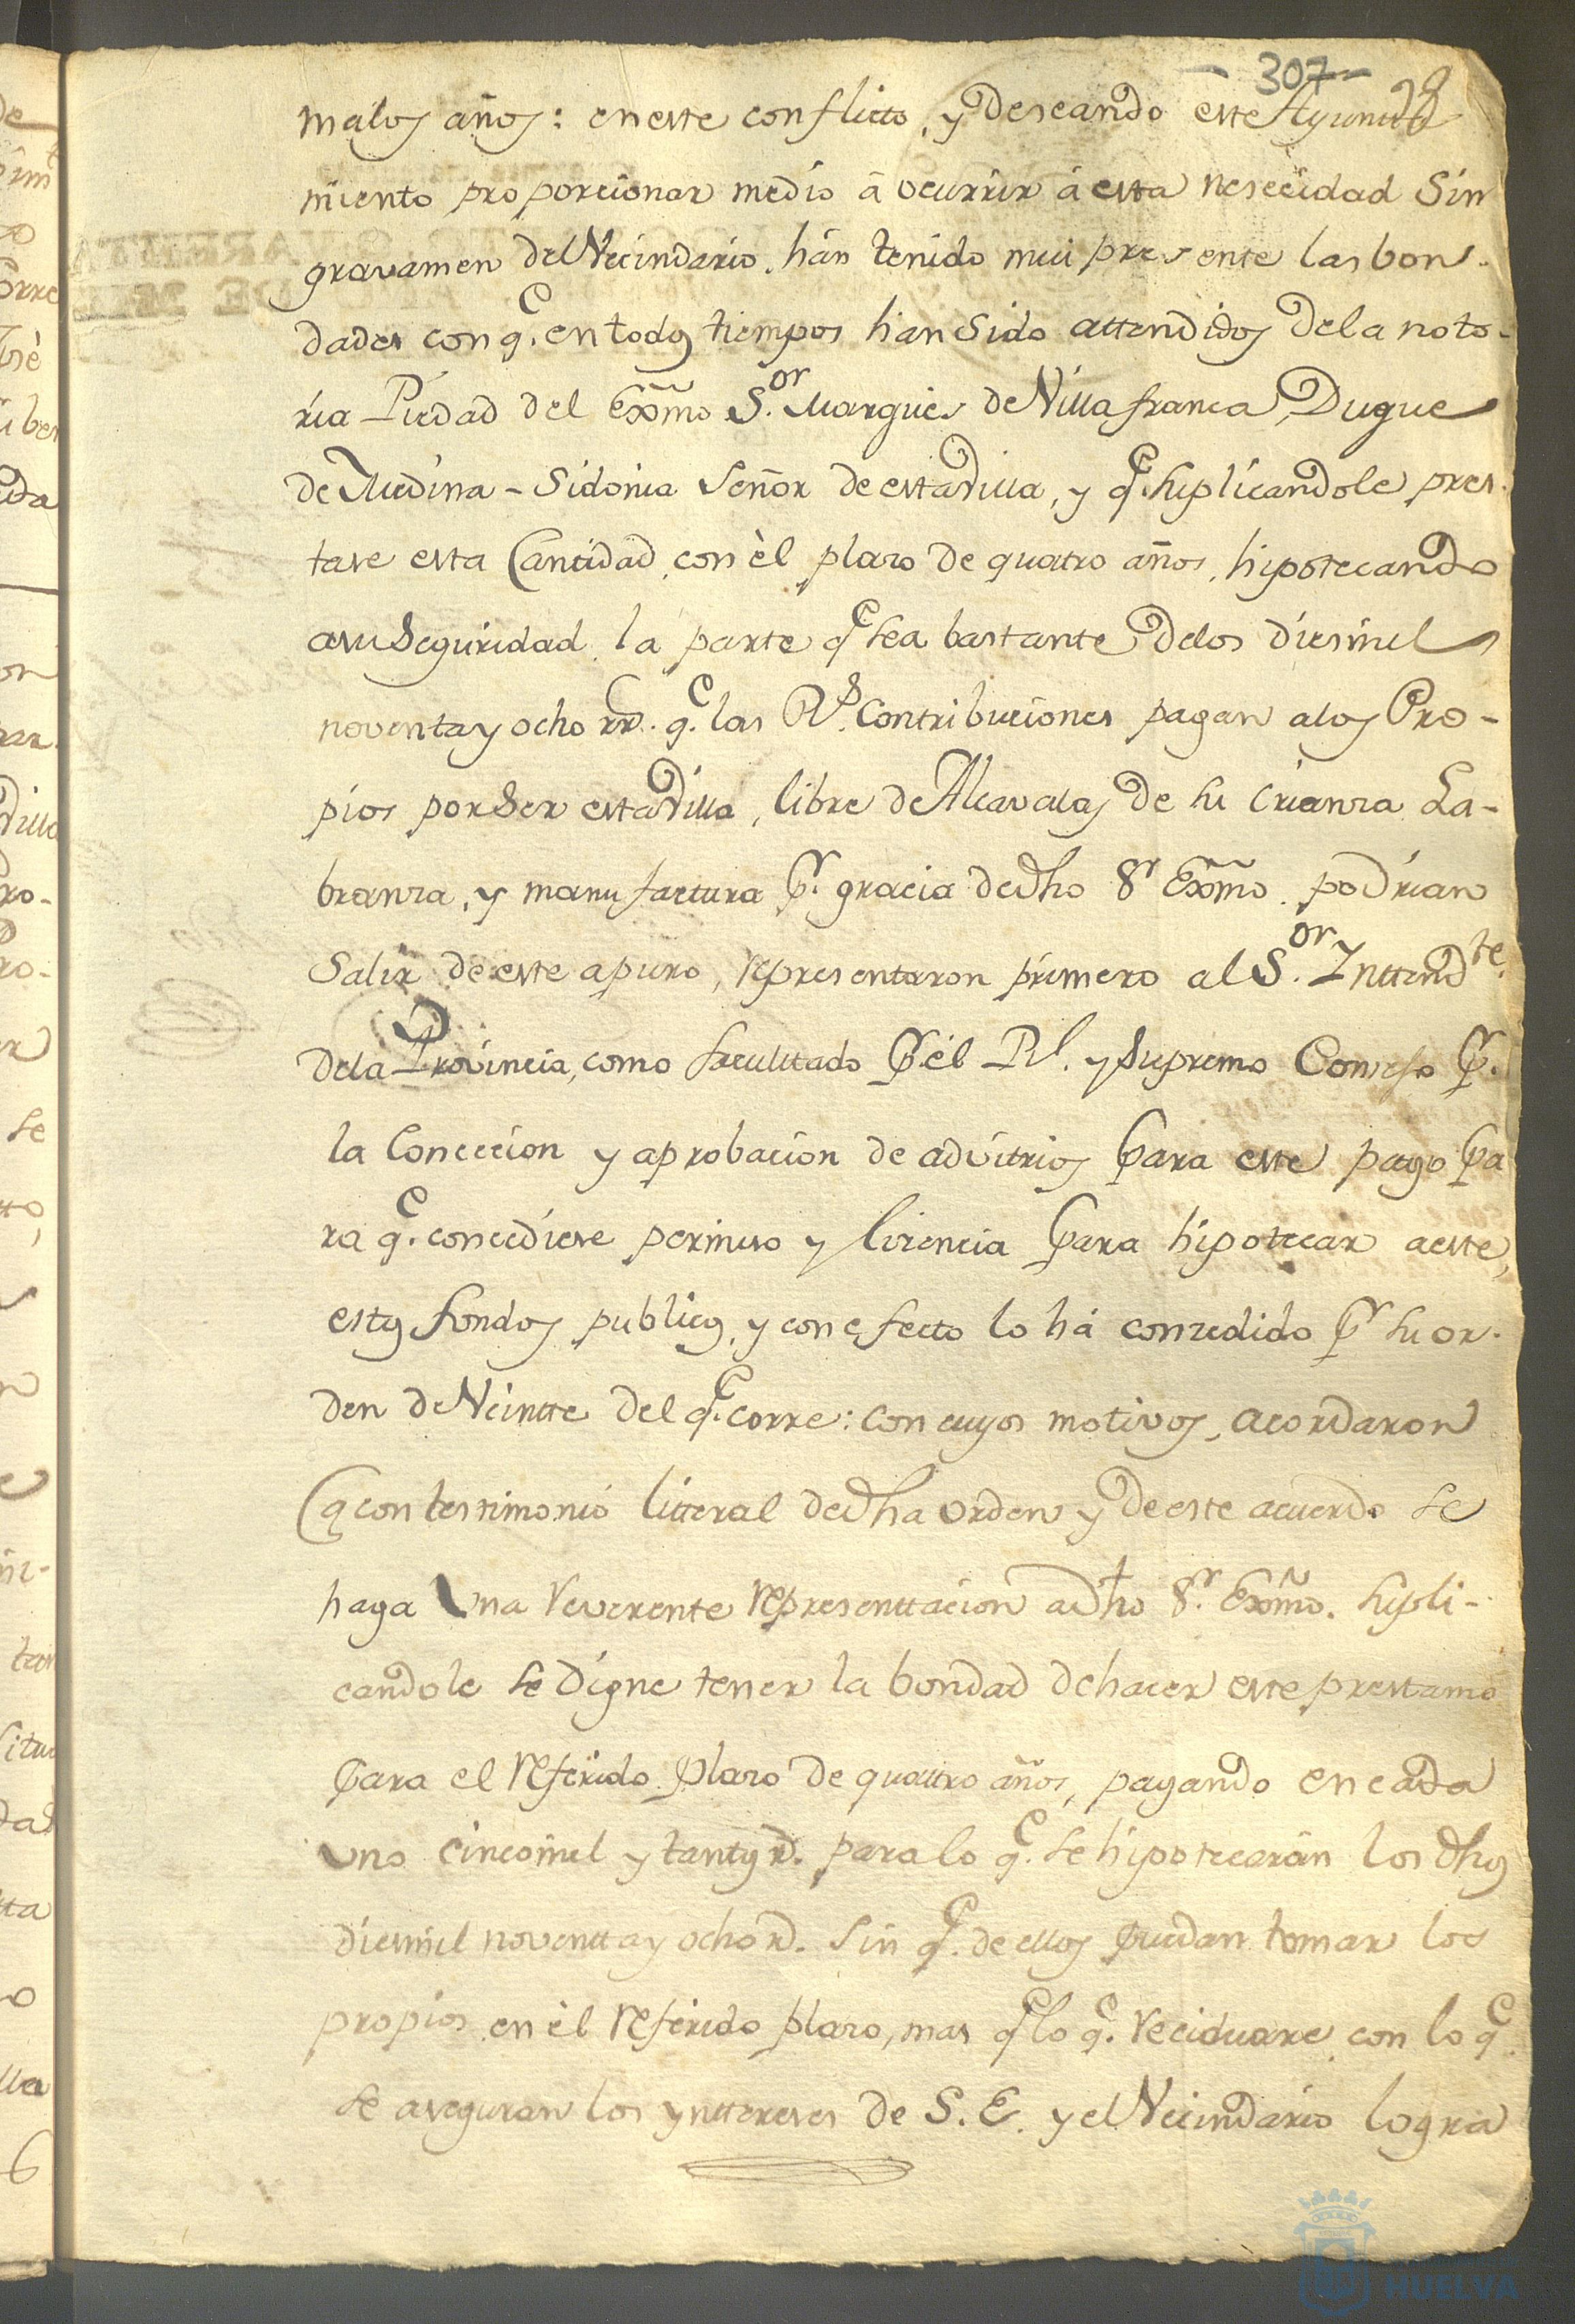 - 307 -
malos años: en este conflicto, y deseando este Ayunta
miento proporcionar medio á ocurrir á esta nesecidad sin
gravamen del Vecindario, hán tenido mui presente las bon-
dades con q.e en todos tiempos han sido attendidos de la noto-
ria Piedad del Exõmo S.or Marques de Villafranca, Duque
de Medina-Sidonia Señor de esta Villa, y q.e suplicandole pres-
tase esta Cantidad, con èl plazo de quatro años, hipotecando
a su seguridad la parte q.e sea bastante de los diesmil
noventa y ocho rr.s q.e las R.s Contribuciones pagan a los Pro-
pios por ser esta Villa, libre de Alcavalas de su crianza La-
branza, y manufactura p.r gracia de dho S.r Exõmo. podrian
Salir de este apuro, representaron primero al S.or Inttend.te
de la Provincia, como facultado p.r él R.l y Supremo Consejo p.a
la Conceción y aprobacion de advitrios para este pago pa
ra q.e concediese permiso y licencia para hipotecar a este,
estos fondos publicos, y con efecto lo há concedido p.r su or-
den de Veintte del q.e corre: con cuyos motivos, acordaron
q con testimonio litteral de dha orden y de este acuerdo se
haga Una reverente representtacion a dho S.r Exõmo. supli-
candole se digne tener la bondad de hacer este prestamo
para el referido plazo de quattro años, pagando en cada
uno cincomil y tantos r.s para lo q.e se hipotecarán los dhos
diesmil noventta y ocho r.s sin q.e de ellos puedan tomar los
propios en èl referido plazo, mas q.e lo q.e reciduare con lo q.e
se aseguran los ynttereses de S. E. y el Vecindario logra
HUELVA